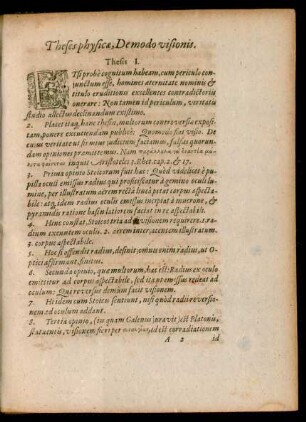 Theses physicæ, De modo visionis.
Thesis I.
ETsi probè cognitum habeam, cum periculo con-
iunctum esse, homines æternitate nominis &
titulo eruditionis excellentes contradictoriis
onerare: Non tamen id periculum, veritatis
studio allectus declinandum existimo.
2. Placet itaque hanc thesin, multorum controversiæ exposi-
tam, ponere excutiendam publicè: Quomodo fiat visio. De
cuius veritate ut firmum iudicium faciatis, falsas quorun-
dam opiniones præmittemus. Nam
inquit Aristoteles 1. Rhet. cap. 2. & 17.
3. Prima opinio Stoicorum fuit hæc: Quòd videlicet è pu-
pilla oculi emissus radius qui proficiscatur à gemino oculi lu-
mine, per illustratum aërem recta linea petat corpus aspecta-
bile: atque idem radius oculis emissus incipiat à mucrone, &
pyramidis ratione basin latiorem faciat in re aspectabili.
4. Hinc constat, Stoicos tria ad visionem requirere. 1. ra-
dium exeuntem oculis. 2. aërem interiacentem illustratum.
3. corpus aspectabile.
5. Hoc si offendit radius, desinit: omnis enim radius, ut O-
ptici affirmant, finitus.
6. Secunda opinio, quam multorum, hæc est: Radium ex oculo
emittitur ad corpus aspectabile, sed ita ut emissus redeat ad
oculum: Qui reversus demum facit visionem.
7. Hi idem cum Stoicis sentiunt, nisi quòd radii reversio-
nem ad oculum addant.
8. Tertia opinio, (in quam Galenus iuravit) est Platonis,
statuentis, visionem fieri per id est corradiationem
A 2 id